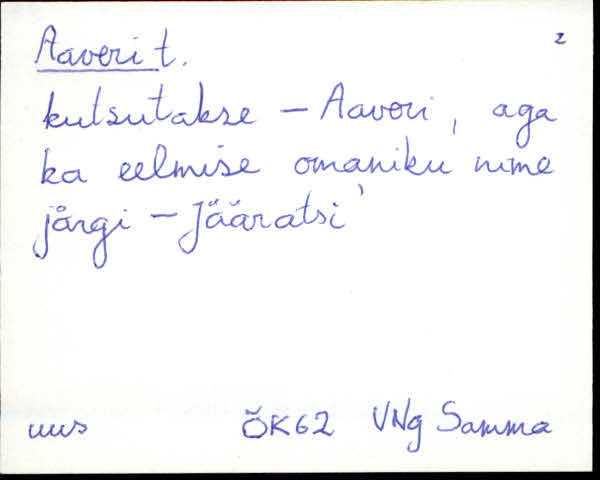 Aaveri t. 2
kutsutakse – Aaveri, aga
ka eelmise omaniku nime
järgi – Jääratsi'
uus ÕK62 VNg Samma